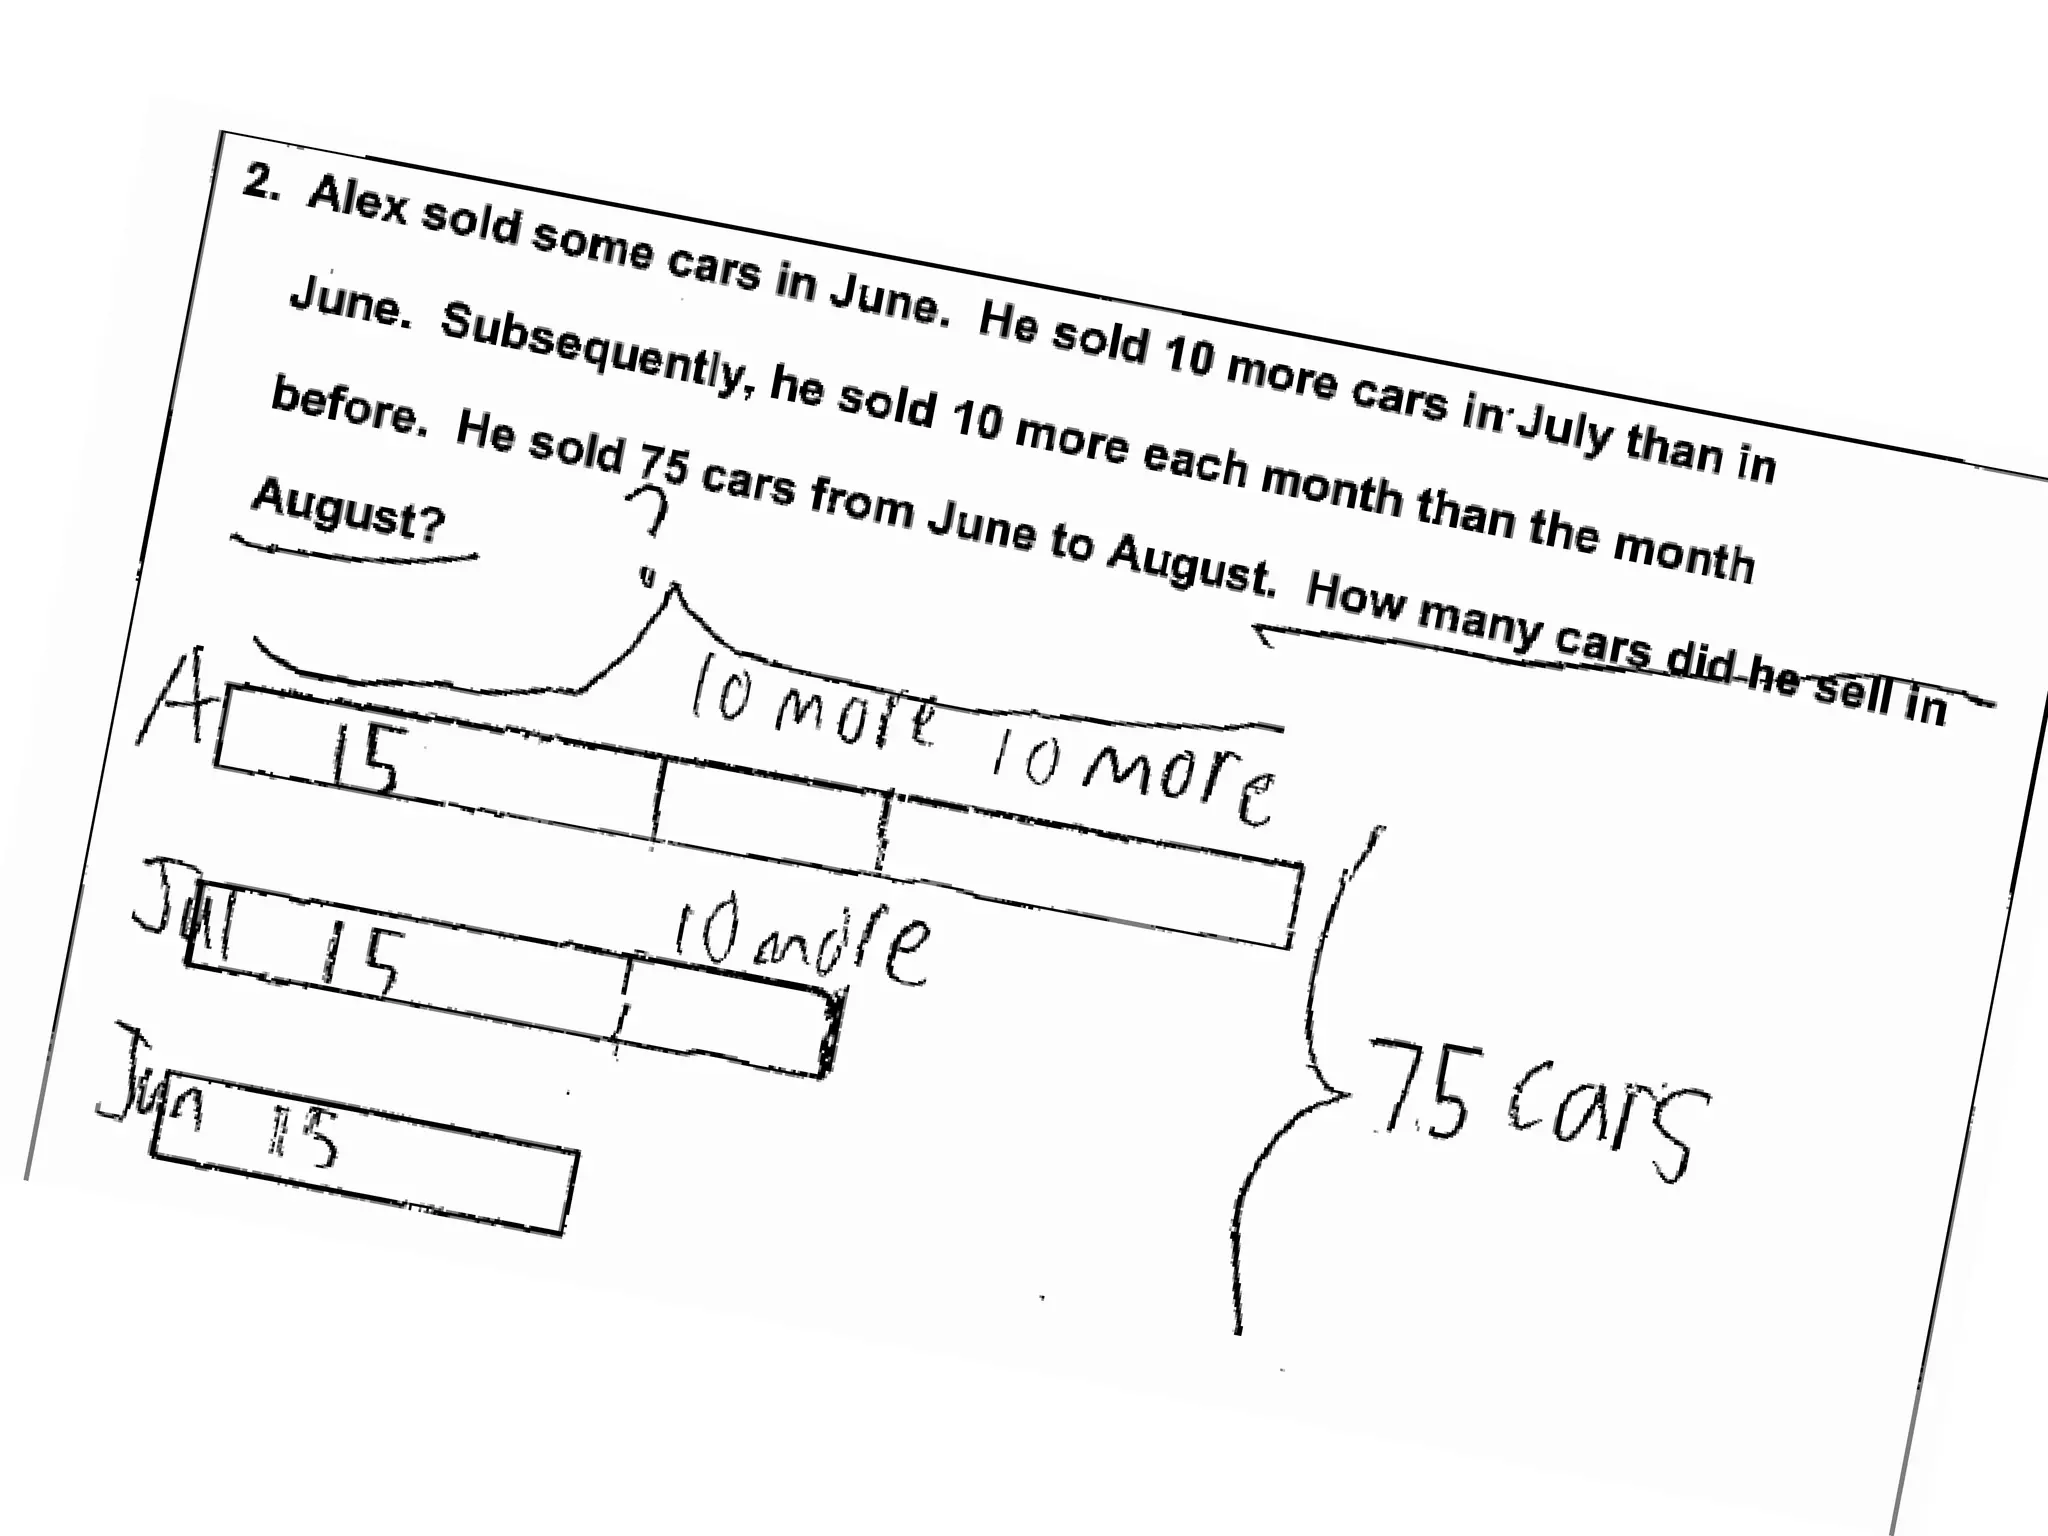 2. Alex sold some cars in June. He sold 10 more cars in July than in
June. Subsequently, he sold 10 more each month than the month
before. He sold 75 cars from June to August. How many cars did he sell in
August?
?
10 more 10 more
A 15
10 more
Jul 15
Jun 15
75 cars